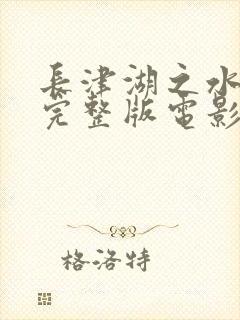 長津湖之水
完整版電影
格洛特